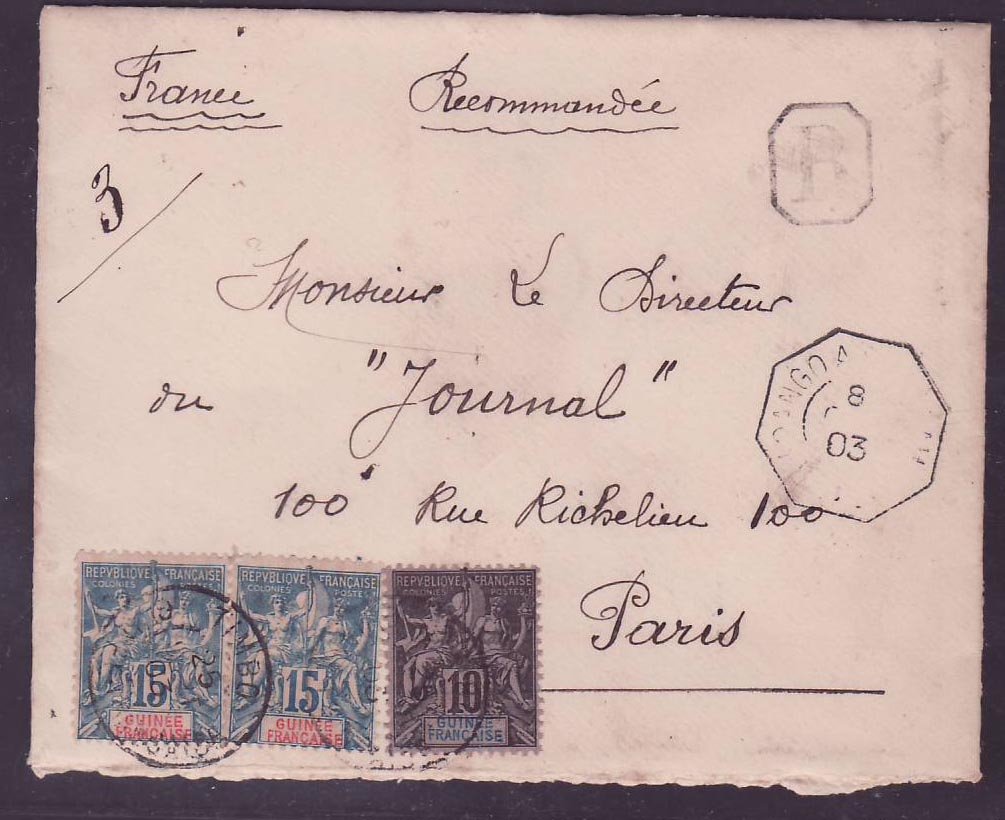 France Recommandée
R
3
Monsieur Le Directeur
du "Journal"
100 Rue Richelieu 100
Paris
LOANGO A
8
03
REPVBLIQVE FRANÇAISE
COLONIES POSTES
15
GUINÉE
FRANÇAISE
REPVBLIQVE FRANÇAISE
COLONIES POSTES
15
GUINÉE
FRANÇAISE
REPVBLIQVE FRANÇAISE
COLONIES POSTES
10
GUINÉE
FRANÇAISE
TIMBO
25